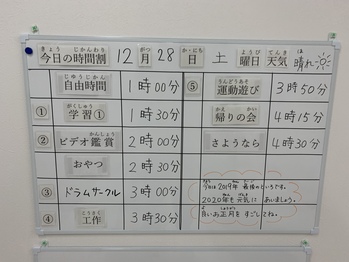 きょう じかんわり がつ か・にち ようび てんき は
今日の時間割 12月28日 土 曜日 天気 晴れ
じゆうじかん
自由時間 1時00分
① がくしゅう
学習① 1時30分
② かんしょう
ビデオ鑑賞 2時00分
おやつ 2時30分
③ ドラムサークル 3時00分
④ こうさく
工作 3時30分
⑤ うんどうあそ
運動遊び 3時50分
かえ かい
帰りの会 4時15分
さようなら 4時30分
今日は2019年 最後の
です。
2020年も元気に あいましょう。
良いお正月を すごしてね。